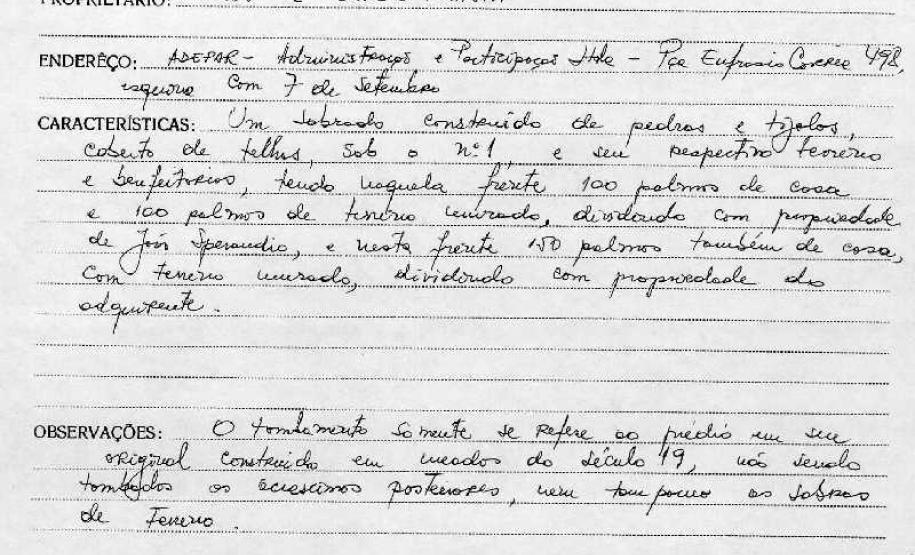 PROPRIETÁRIO:
ENDERÊÇO: ADEPAR - Administração e Participações Ltda - Pça Eufrasio Correia 498,
esquina com 7 de Setembro
CARACTERÍSTICAS: Um sobrado construido de pedras e tijolos,
coberto de telhas, sob o nº 1, e seu respectivo terreno
e benfeitorias, tendo naquela frente 100 palmos de casa
e 100 palmos de terreno murado, dividindo com propriedade
de João Sperandio, e nesta frente 150 palmos também de casa,
com terreno murado, dividindo com propriedade do
adquirente.
OBSERVAÇÕES: O tombamento somente se refere ao prédio em seu
original construido em meados do século 19, não sendo
tombados os acrescimos posteriores, nem tampouco as sobras
de terreno.